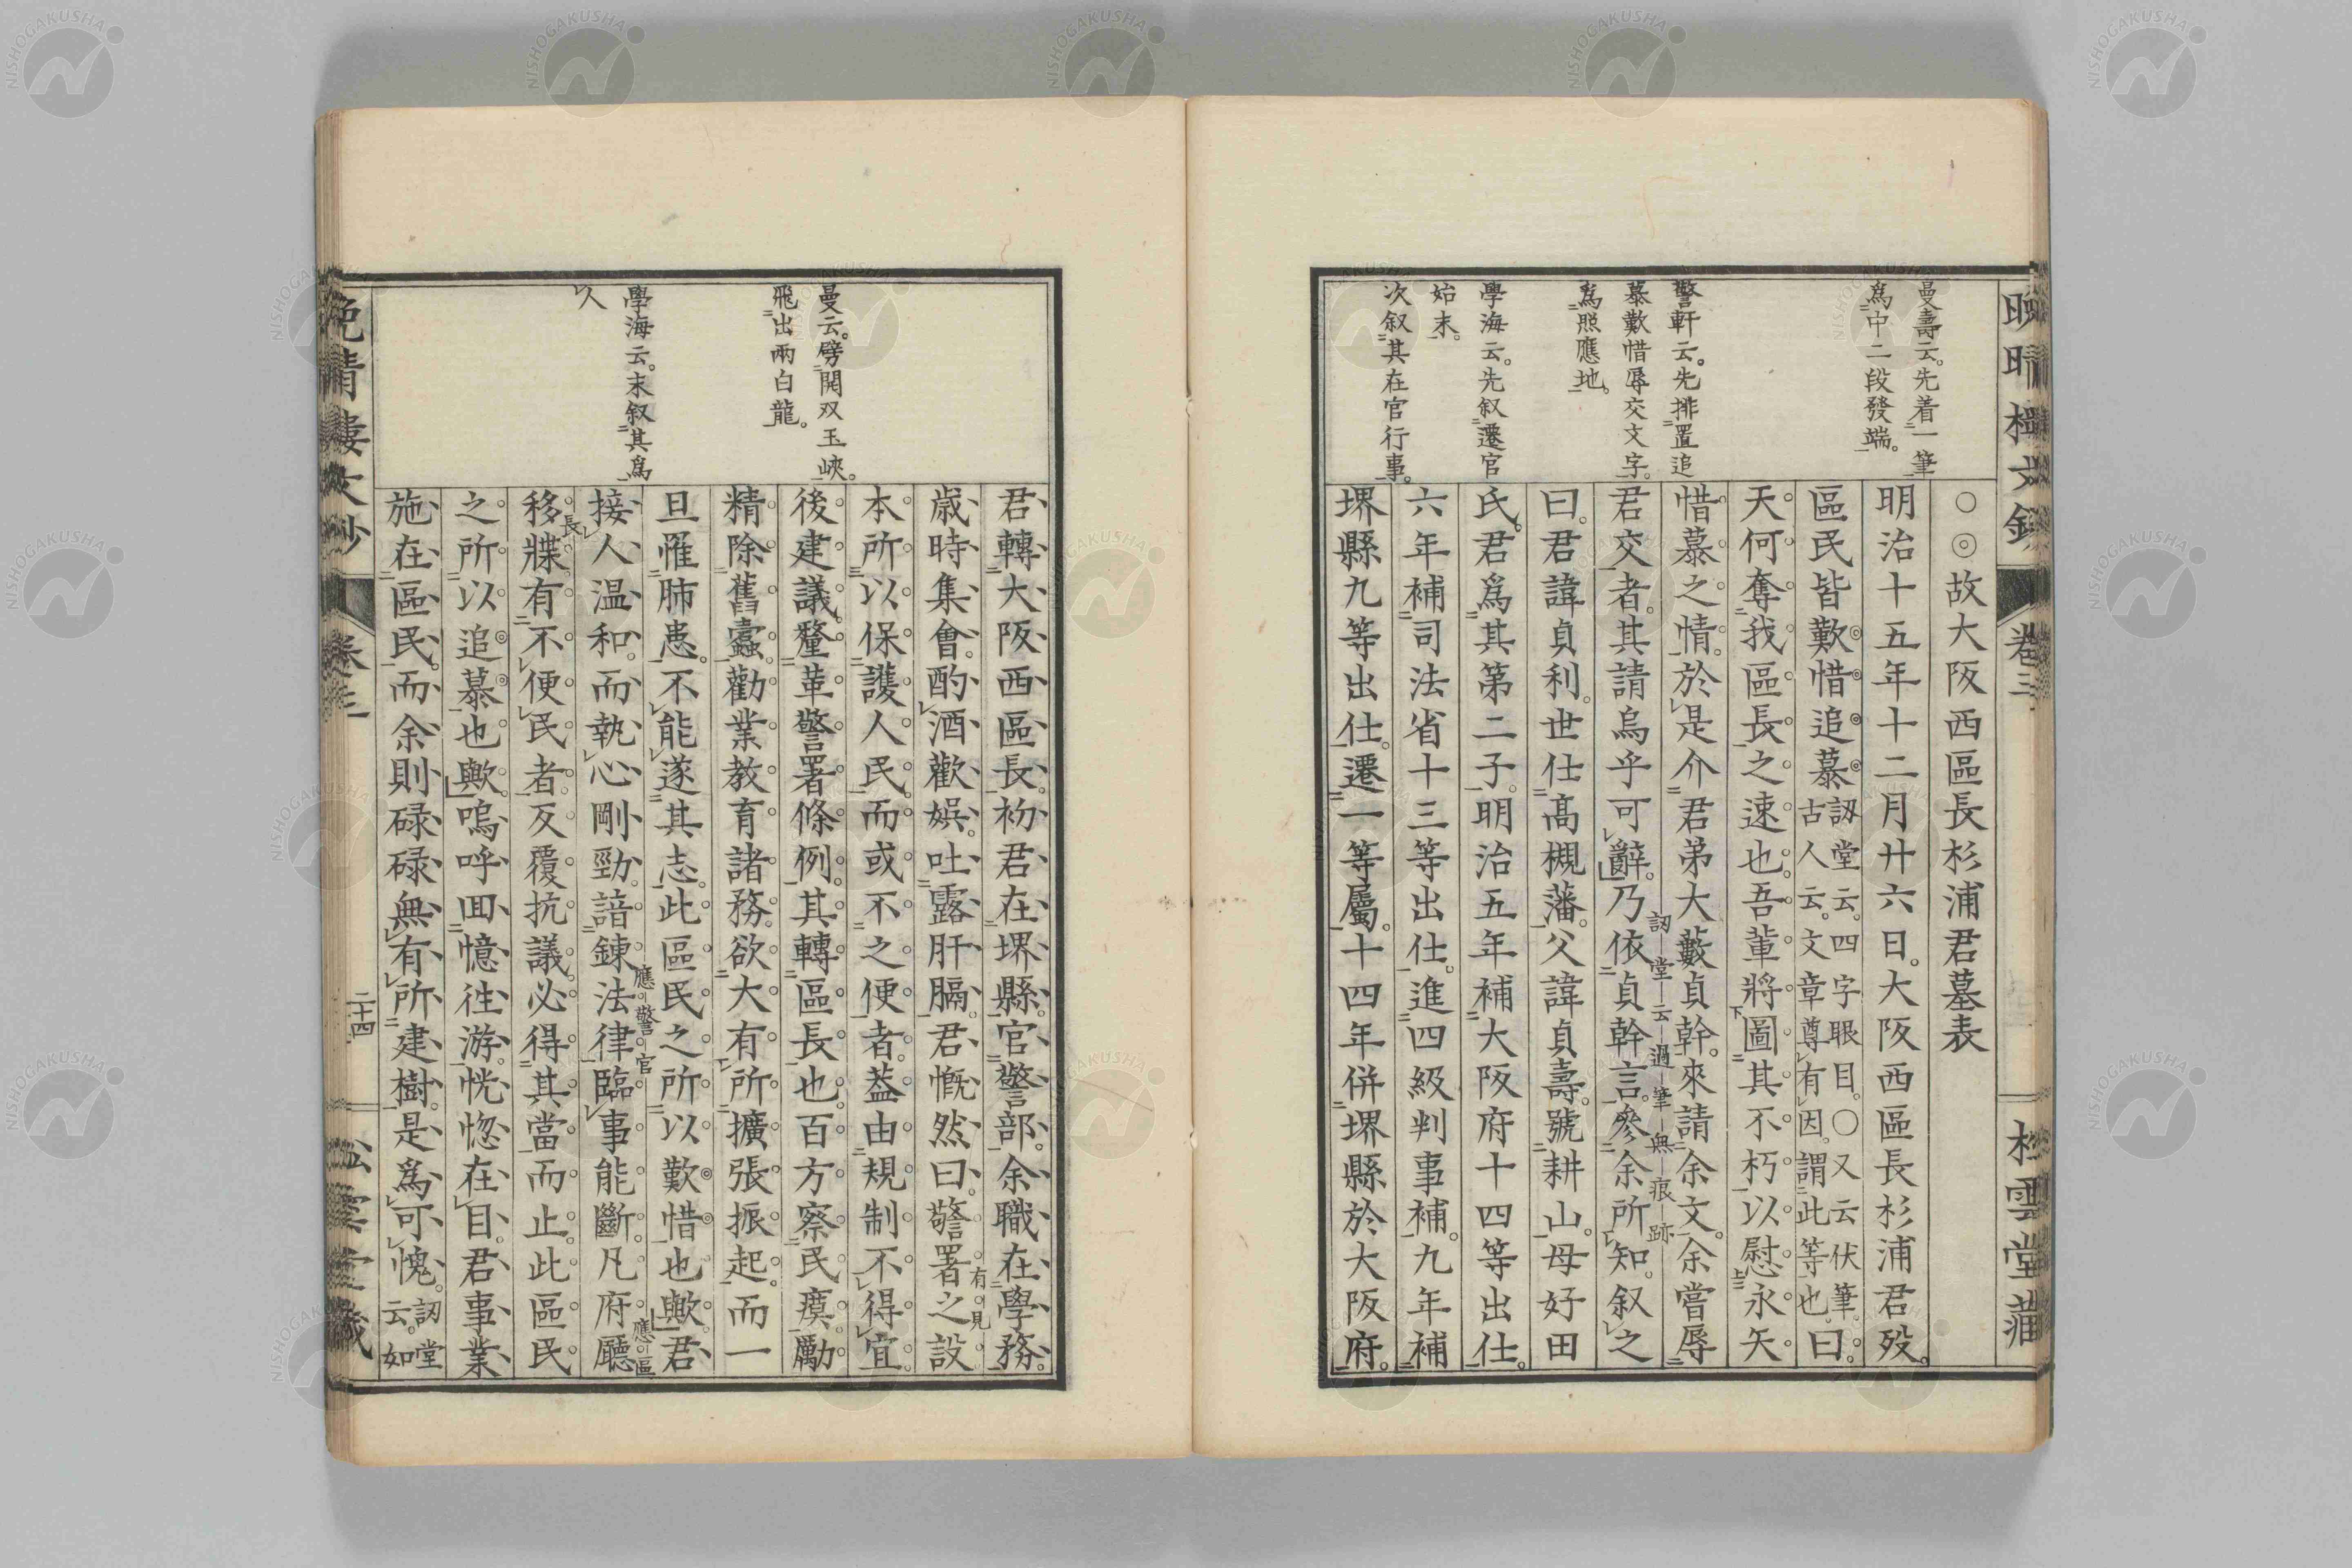 晩晴樓文鈔 卷三 松雲堂藏
曼壽云。先着一筆
爲中二段發端。
警軒云。先排置追
慕歎惜辱交文字。
爲照應地。
學海云。先叙遷官
始末。
次叙其在官行事。
○◎故大阪西區長杉浦君墓表
明治十五年十二月廿六日。大阪西區長杉浦君歿。
區民皆歎惜追慕訒堂云。四字眼目。○又云伏筆。古人云。文章尊有因。謂此等也。曰。
天何奪我區長之速也。吾輩將圖其不朽以慰永矢
惜慕之情。於是介君弟大藪貞幹。來請余文。余嘗辱
訒堂云過筆無痕跡
君交者。其請烏乎可辭。乃依貞幹言。參余所知。叙之
曰。君諱貞利。世仕高槻藩。父諱貞壽。號耕山。母好田
氏。君爲其第二子。明治五年補大阪府十四等出仕。
六年補司法省十三等出仕。進四級判事補。九年補
堺縣九等出仕。遷一等屬。十四年併堺縣於大阪府。
曼云。劈開双玉峽。
飛出兩白龍。
學海云。末叙其爲
人
君轉大阪西區長。初君在堺縣。官警部。余職在學務。
有見
歲時集會。酌酒歡娯。吐露肝膈。君慨然曰。警署之設
本所以保護人民。而或不之便者。葢由規制不得宜。
後建議釐革警署條例。其轉區長也。百方察民瘼。勵
精除舊蠹。勸業教育諸務。欲大有所擴張振起。而一
旦罹肺患。不能遂其志。此區民之所以歎惜也歟。君
應警官 應區長
接人温和。而執心剛勁。諳鍊法律。臨事能斷。凡府廳
移牒。有不便民者。反覆抗議。必得其當而止。此區民
之所以追慕也歟。嗚呼回憶徃游。恍惚在目。君事業
施在區民。而余則碌碌無有所建樹。是爲可愧。訒堂云。如
晩晴樓文鈔 卷三 二十四 松雲堂藏